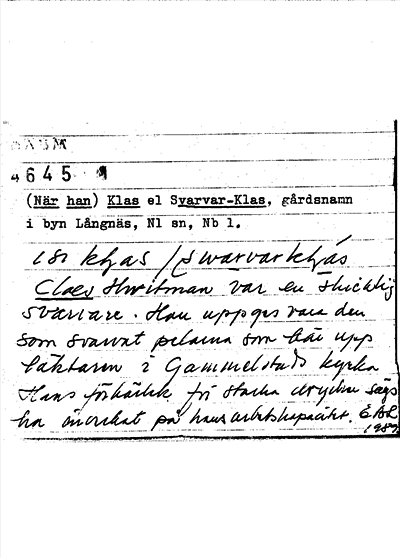 4645
(När han) Klas el Svarvar-Klas, gårdsnamn
i byn Långnäs, Nl sn, Nb l.
Claes var en skicklig
svarvare. Han uppges vara den
som svarvat pelarna som bär upp
läktaren i Gammelstads kyrka
Hans förkärlek för starka drycker sägs
ha inverkat på hans arbetskapacitet.
1987